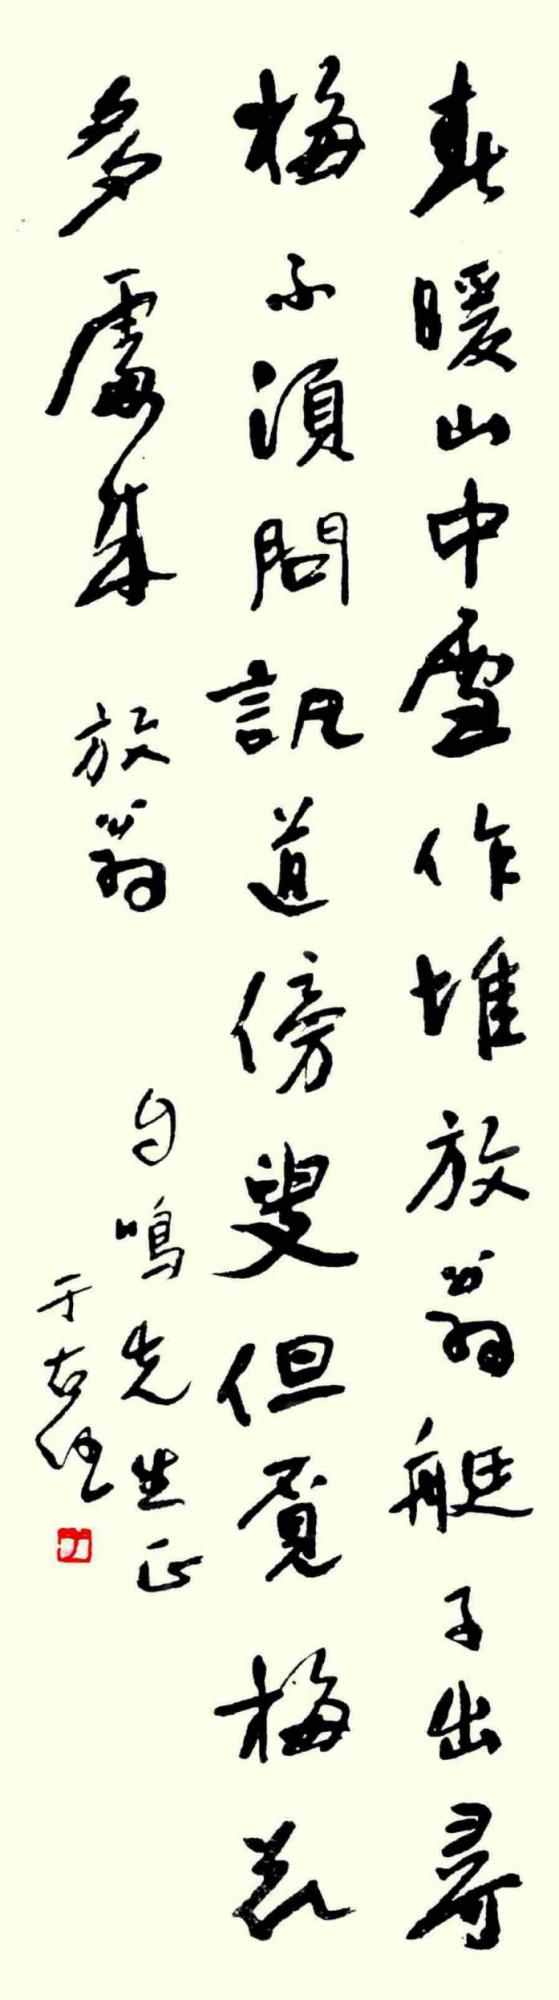 春暖山中雲作堆放翁艇子出尋
梅不須問訊道傍叟但覓梅花
多處來 放翁
鳴先生正
于右任